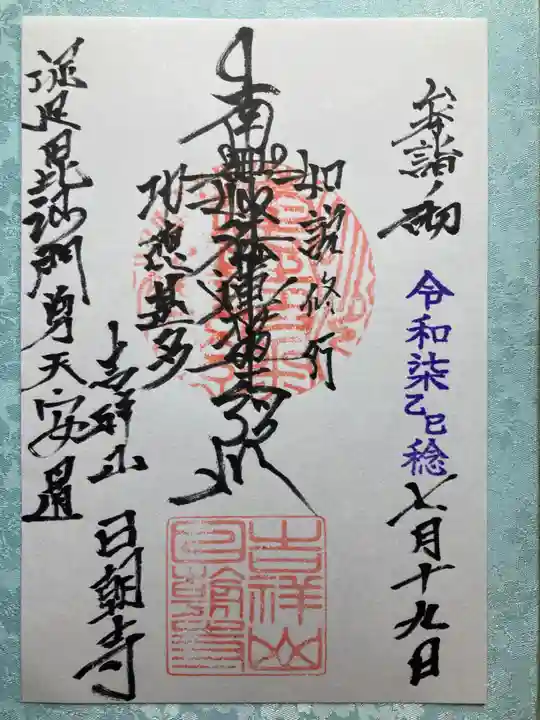 参詣ノ砌
令和柒乙巳稔
七月十九日
如説修行
南無妙法蓮華経
功徳甚多
吉祥山
日朝寺
足毘沙門尊天安置
吉祥山